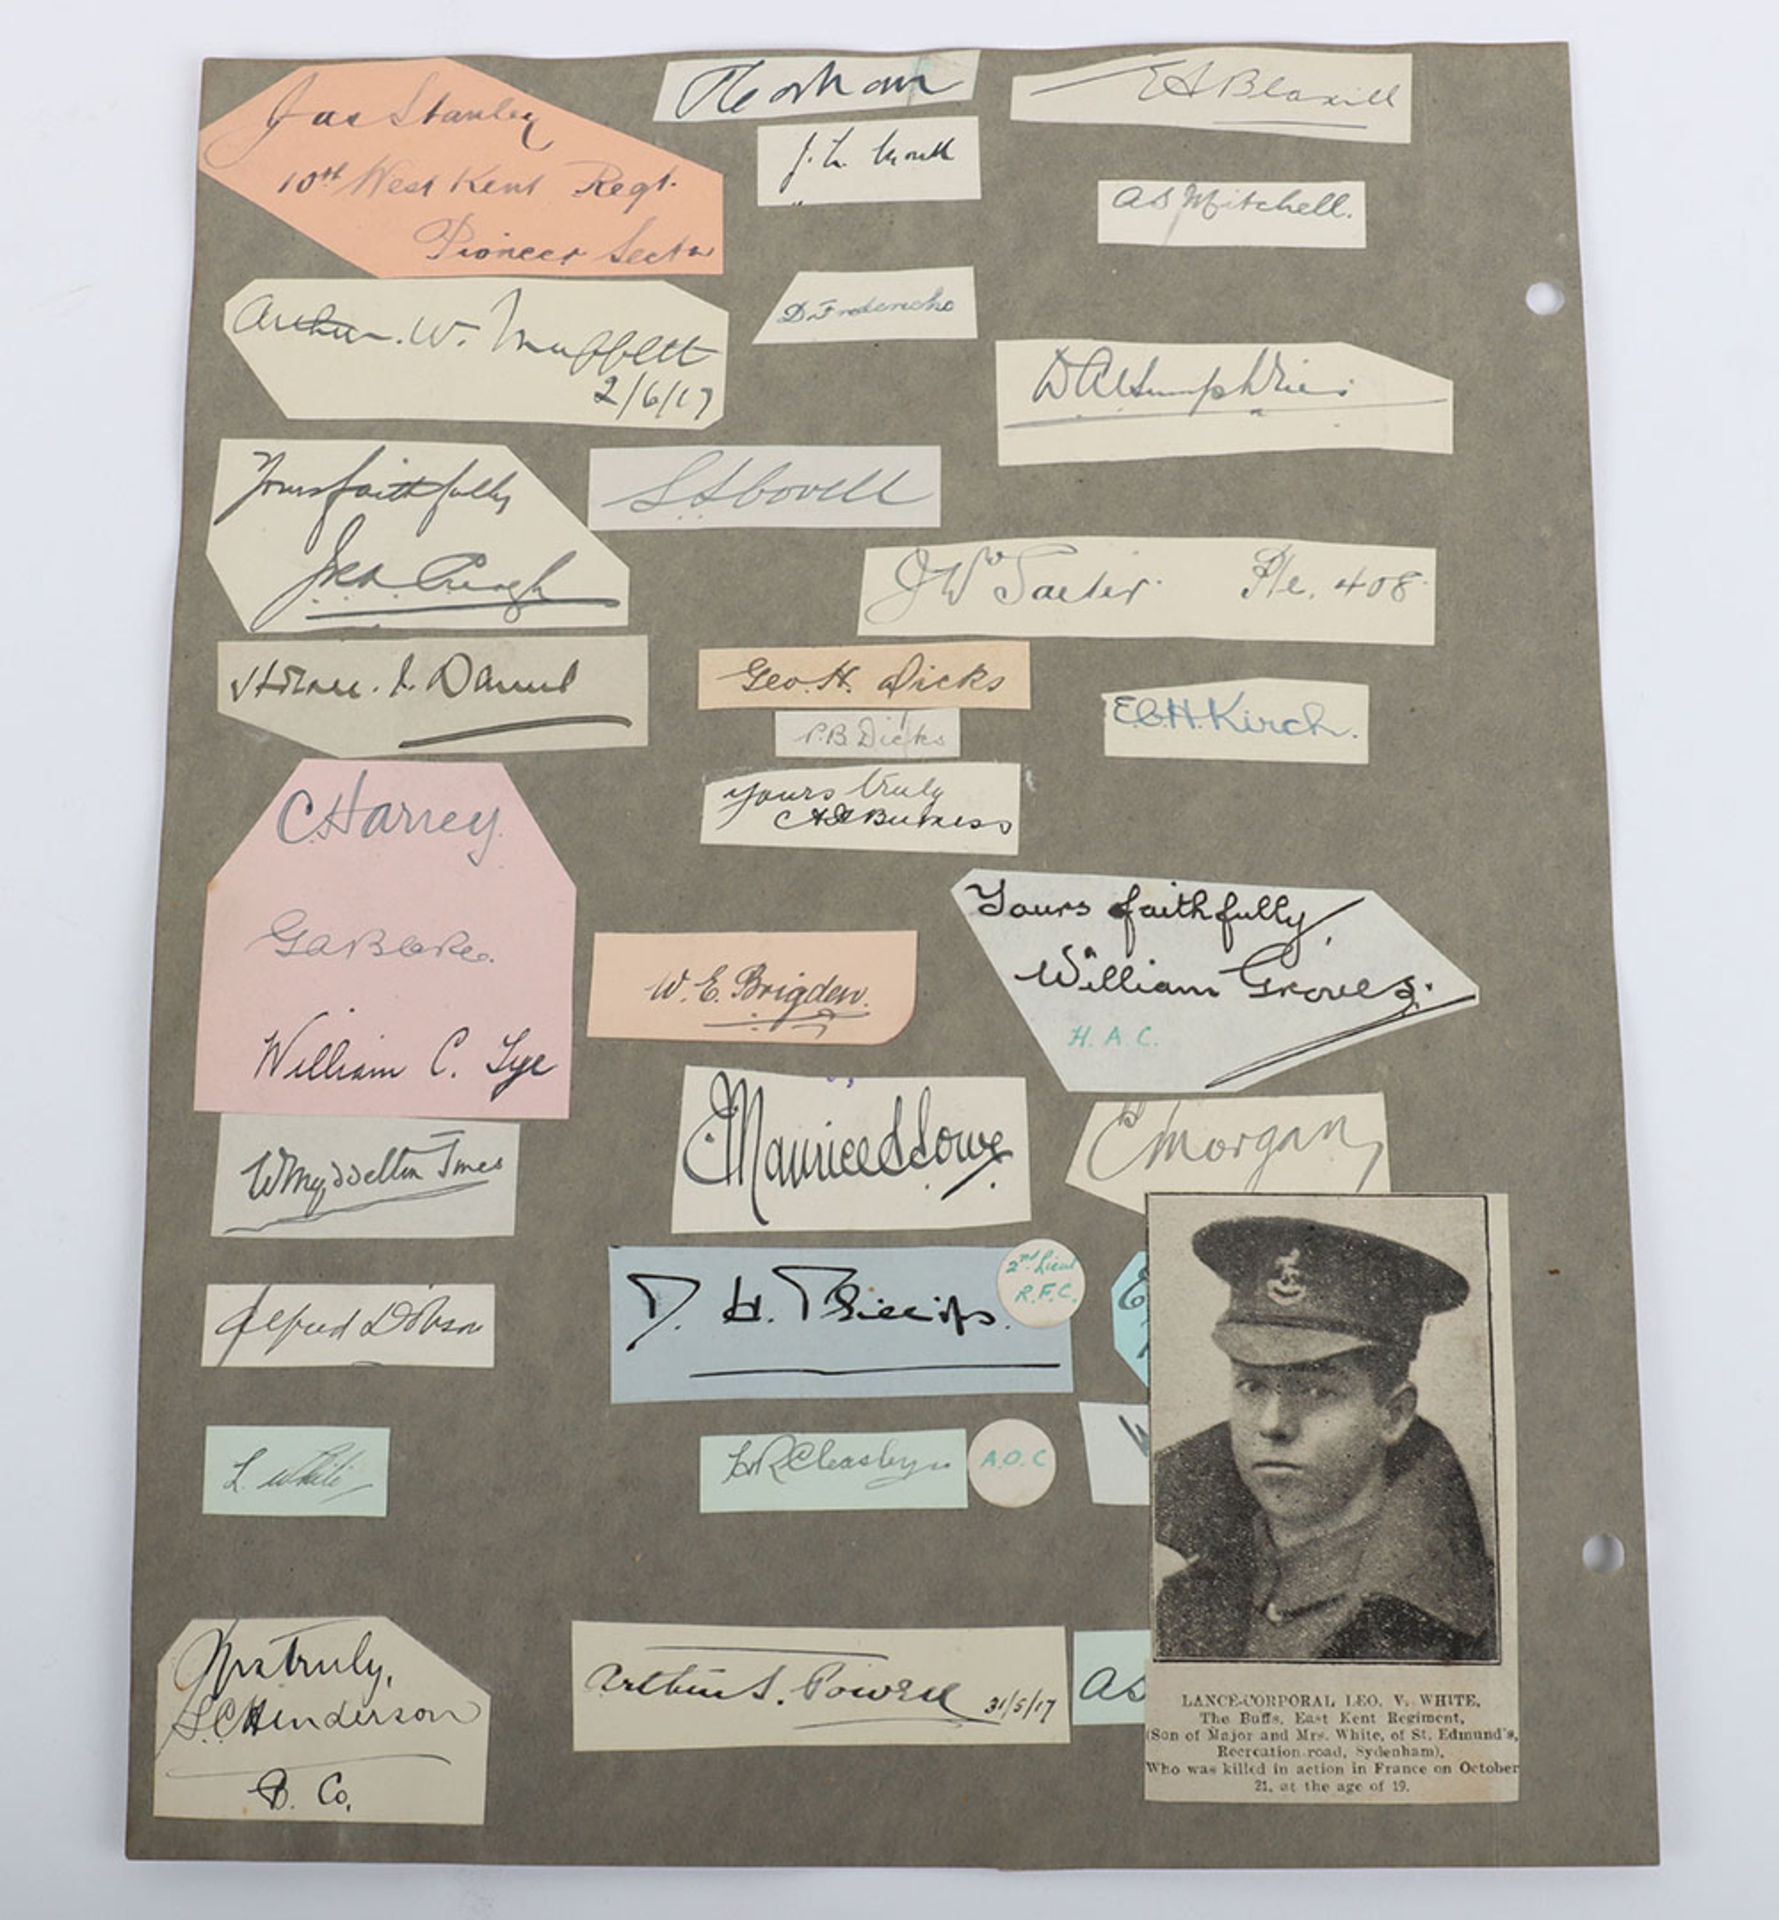 Jas Stanley
10th West Kent Regt.
Pioneer Sectn
E A Blaxill
A S Mitchell.
Arthur. W. Muffett
2/6/17
D. Fredericks
D A Humphries
Yours faithfully
S. H. Covell
Pte. 408
Daniel
Geo. H. Dicks
P.B. Dicks
E.C.H. Kirch.
yours truly
C Harvey.
G A Blake.
William C. Tye
W. E. Brigden.
Yours faithfully,
William Groves.
H. A. C.
Maurice S Lowe
E Morgan
Alfred Dobson
D. H. Phillips.
2nd Lieut
R.F.C.
L. White
A.O.C
Yrs truly,
S.C. Henderson
B. Co.
Arthur S. Powell 31/5/17
AS
LANCE-CORPORAL LEO. V. WHITE,
The Buffs, East Kent Regiment,
(Son of Major and Mrs. White, of St. Edmund's,
Recreation-road, Sydenham),
Who was killed in action in France on October
21, at the age of 19.